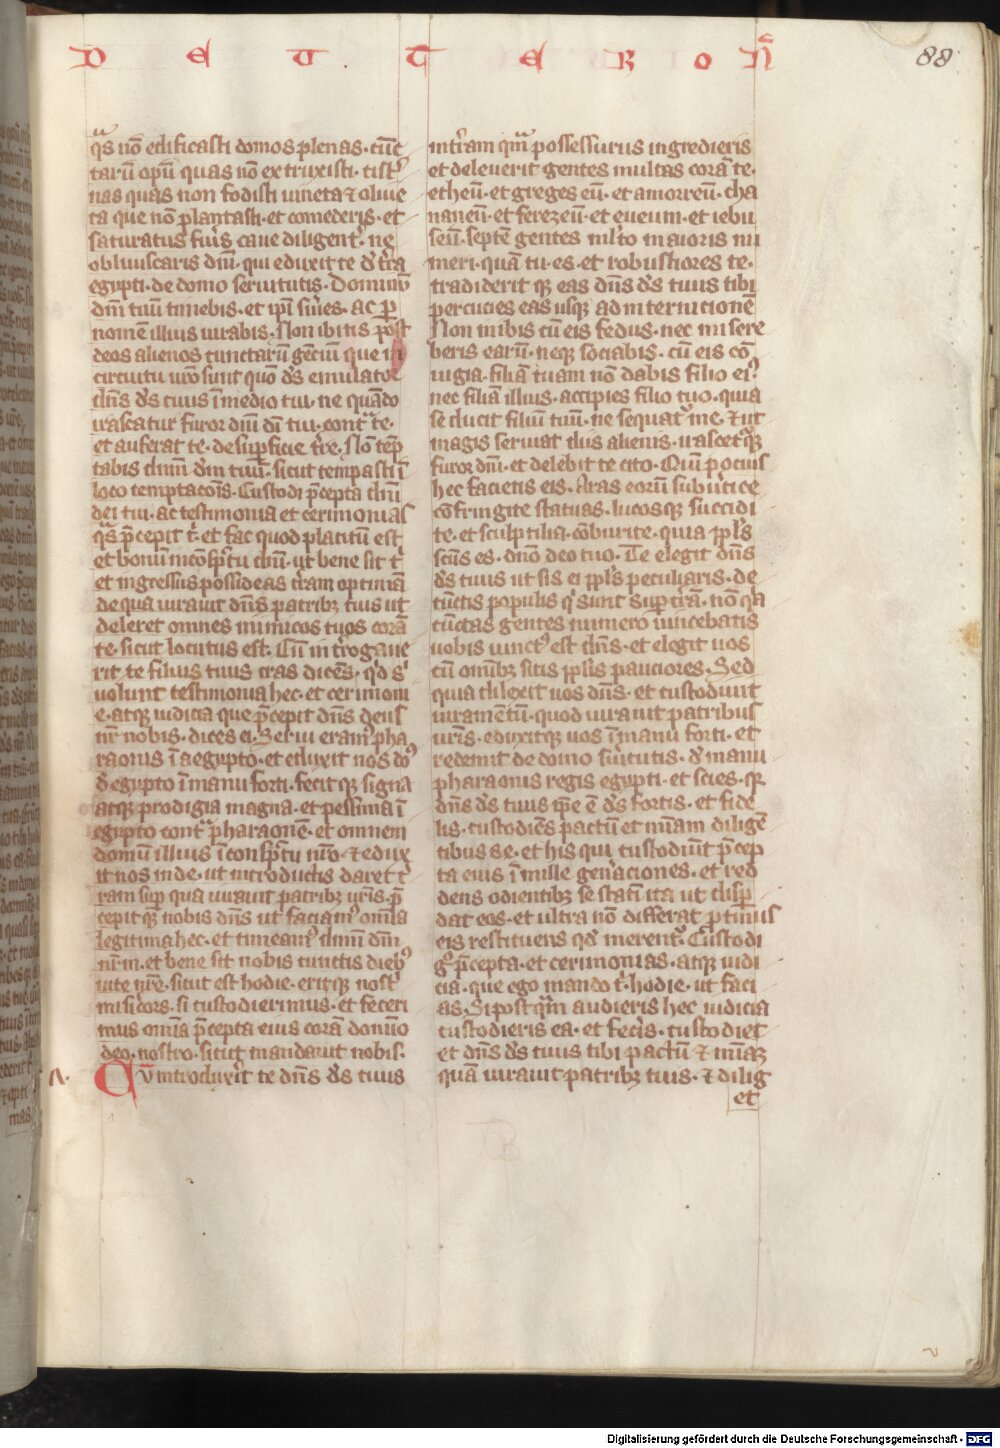 D E U T E R O N̄
88
qͣs nō edificasti domos plenas · cūc
tarū opū quas nō extruxisti · cistꝰ
nas quas non fodisti vineta ⁊ olive
ta que nō plantasti · et comederis · et
saturatus fuis̄ cave diligentꝰ · ne
obliviscaris dn̄i · qui eduxit te d̄ tr̄a
egypti · de domo servitutis · Dominū
dn̄m tuū timebis · et ip̄i s̄vies · ac ꝑ
nomē illius iurabis · Non ibitis post
deos alienos cunctarū gēciū que in
circuitu vr̄o sunt quō d̄s emulator
dn̄s d̄s tuus ī medio tui · ne quādo
irascatur furor dn̄i dī tui · contͣ te ·
et auferat te · de suꝑficie tr̄e · Nō tēp
tabis dn̄m dm̄ tuū · sicut temptasti ī
loco temptacōis · Custodi p̄cepta dn̄i
dei tui · ac testimonia et cerimonias
qͣs p̄cepit t̄ · et fac quod placitū est
et bonū in cōsp̄tu dn̄i · ut bene sit t̄
et ingressus possideas tr̄am optimā
de qua iuravit dn̄s patribꝫ tuis ut
deleret omnes inimicos tuos corā
te · sicut locutus est · Cū int̄rogave
rit te filius tuus cras dicēs · qͥd sͥ
volunt testimonia hec · et cerimoni
e · atqꝫ iudicia que p̄cepit dn̄s deus
nr̄ nobis · dices ei · Servi eramꝰ pha
raonis ī aegypto · et eduxit nos dn̄s
d̄ egypto ī manu forti · fecit qꝫ signa
atqꝫ prodigia magna · et pessima ī
egypto contͣ pharaonē · et omnem
domū illius ī consp̄tu nr̄o · ⁊ edux
it nos inde · ut introductis daret t̄
ram suꝑ qua iuravit patribꝫ vr̄is · p̄
cepitqꝫ nobis dn̄s ut faciamꝰ omīa
legitima hec · et timeamꝰ dn̄m dm̄
nr̄m · et bene sit nobis cunctis diebꝰ
vite nr̄e · sicut est hodie · eritqꝫ nostͥ
mis̄icors · si custodierimus · et feceri
mus omīa p̄cepta eius corā domīo
deo · nostro · sicut mandavit nobis ·
Cū introdux̄it te dn̄s d̄s tuus
in tr̄am qm̄ possessurus ingredieris
et deleverit gentes multas corā te ·
etheū · et gerges eū · et amorreū · cha
naneū · et ferezeū · et eveum · et iebu
seū · septē gentes ml̄to maioris nu
meri · quā tu · es · et robustiores te ·
tradiderit qꝫ eas dn̄s d̄s tuus tibi
percucies eas usqꝫ ad internicionē
Non inibis cū eis fedus · nec misere
beris earū · neqꝫ sociabis · cū eis cō
iugia · filiā tuam nō dabis filio eiꝰ
nec filiā illius · accipies filio tuo · quia
seducit filiū tuū · ne sequatͬ me · ⁊ ut
magis serviat diis alienis · irascetͬqꝫ
furor dn̄i · et delebit te cito · Quī pocius
hec facietis eis · Aras eorū subv̄tice
cōfringite statuas · lucosqꝫ succidi
te · et sculptilia · cōburite · quia ppl̄s
scūs es · dn̄o deo tuo · Te elegit dn̄s
d̄s tuus ut sis ei ppl̄s peculiaris · de
cūctis populis qͥ sunt suꝑ tr̄ā · nō qͥa
cūctas gentes numero vincebatis
vobis iunctꝰ est dn̄s · et elegit vos
cū omībꝫ sitis ppl̄is pauciores · Sed
quia dilexit vos dn̄s · et custodivit
iuramētū · quod iuravit patribus
vr̄is · eduxitqꝫ vos ī manu forti · et
redemit de domo s̄vitutis · d̄ manu
pharaonis regis egypti · et scies · qꝛ
dn̄s d̄s tuus ip̄e ē d̄s fortis · et fide
lis · custodiēs pactū et m̄iam diligē
tibus se · et his qui custodiūt p̄cep
ta eius ī mille gen̄aciones · et red
dens odientibꝫ se statī ita ut disꝑ
dat eos · et ultra nō differat ꝓtinus
eis restituens qd̄ merentͬ · Custodi
gͦ p̄cepta · et cerimonias · atqꝫ iudi
cia · que ego mando t̄ · hodie · ut faci
as · Si postqͣm audieris hec iudicia
custodieris ea · et fec̄is · custodiet
et dn̄s d̄s tuus tibi pactū ⁊ m̄iaꝫ
quā iuravit patribꝫ tuis · ⁊ dilig
et
Digitalisierung gefördert durch die Deutsche Forschungsgemeinschaft - DFG